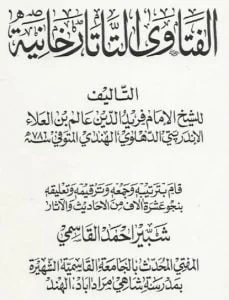 الفتاوى التاتارخانية
التأليف
للشيخ الإمام فريد الدين عالم بن العلاء
الإندربتي الدهلوي الهندي المتوفى ٧٨٦هـ
قام بترتيبه وجمعه وترقيمه وتعليقه
بنحو عشرة آلاف من الأحاديث والآثار
شبير أحمد القاسمي
المفتي المحدث بالجامعة القاسمية الشهيرة
بمدرسة شاهي مراد آباد، الهند